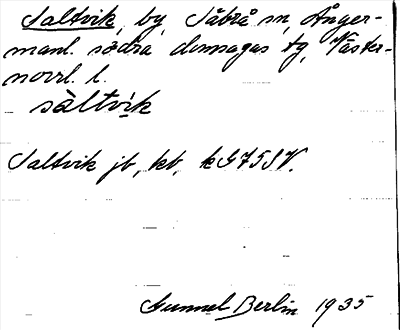 Saltvik, by, Säbrå sn, Ånger-
manl. södra domsagas tg, Väster-
norrl. l.
sàltvik
Saltvik jb, kb, k G75SV.
Gunnel Berlin 1935